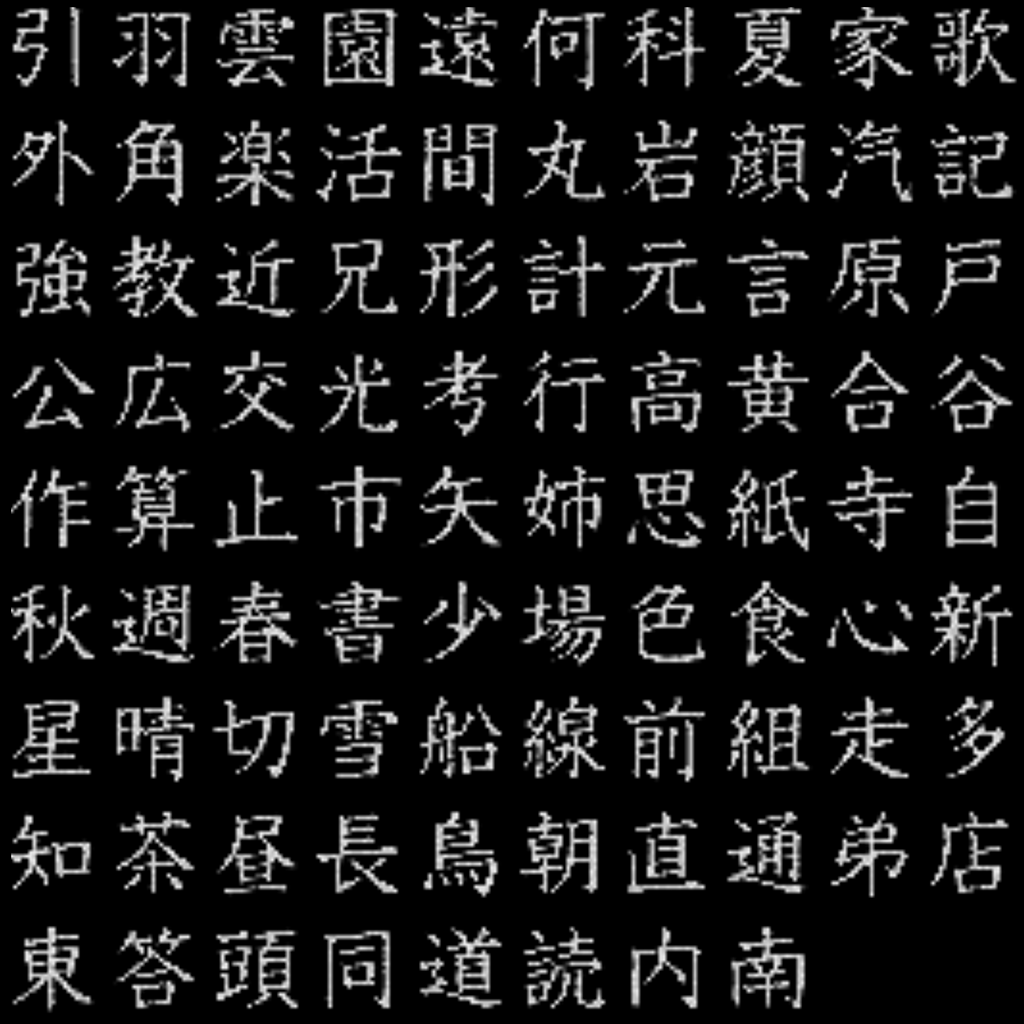 引羽雲園遠何科夏家歌
外角楽活間丸岩顔汽記
強教近兄形計元言原戸
公広交光考行高黄合谷
作算止市矢姉思紙寺自
秋週春書少場色食心新
星晴切雪船線前組走多
知茶昼長鳥朝直通弟店
東答頭同道読内南